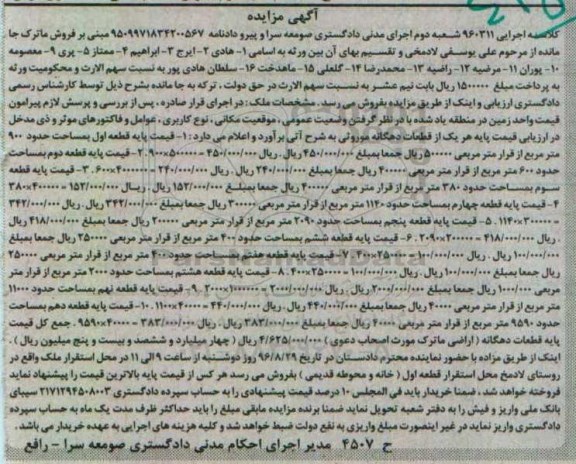 آگهی مزایده
کلاسه اجرایی ۹۶۰۳۱۱ شعبه دوم اجرای مدنی دادگستری صومعه سرا و پیرو دادنامه ۹۵۰۹۹۷۱۸۳۴۲۰۰۵۶۷ مبنی بر فروش ماترک جا
مانده از مرحوم علی یوسفی لادمخی و تقسیم بهای آن بین ورثه به اسامی ۱- هادی ۲- ایرج ۳- ابراهیم ۴- ممتاز ۵- پری ۹- معصومه
۱۰- پوران ۱۱- مرضیه ۱۲- راضیه ۱۳- محمدرضا ۱۴- گلعلی ۱۵- ماهدخت ۱۶- سلطان هادی پور به نسبت سهم الارث و محکومیت ورثه
به پرداخت مبلغ ۱۵۰۰۰۰۰ ریال بابت نیم عشر به نسبت سهم الارث در حق دولت ، ترکه به جا مانده بشرح ذیل توسط کارشناس رسمی
دادگستری ارزیابی و اینک از طریق مزایده بفروش می رسد. مشخصات ملک : در اجرای قرار صادره ، پس از بررسی و پرسش لازم پیرامون
قیمت واحد زمین در منطقه یاد شده با در نظر گرفتن وضعیت عمومی ، موقعیت مکانی ، نوع کاربری ، عوامل و فاکتورهای موثر و ذی مدخل
در ارزیابی قیمت پایه هر یک از قطعات دهگانه موروثی به شرح آتی برآورد و اعلام می دارد : ۱- قیمت پایه قطعه اول بمساحت حدود ۹۰۰
متر مربع از قرار متر مربعی ۵۰۰۰۰۰ ریال جمعا بمبلغ ۴۵۰/۰۰۰/۰۰۰ ریال . ریال ۴۵۰/۰۰۰/۰۰۰ = ۵۰۰۰۰۰×۹۰۰ ۲- قیمت پایه قطعه دوم بمساحت
حدود ۶۰۰ متر مربع از قرار متر مربعی ۴۰۰۰۰۰ ریال جمعا بمبلغ ۲۴۰/۰۰۰/۰۰۰ ریال . ریال ۲۴۰/۰۰۰/۰۰۰ = ۴۰۰۰۰۰×۶۰۰ ۳- قیمت پایه قطعه
سوم بمساحت حدود ۳۸۰ متر مربع از قرار متر مربعی ۴۰۰۰۰۰ ریال جمعا بمبلغ ۱۵۲/۰۰۰/۰۰۰ ریال . ریال ۱۵۲/۰۰۰/۰۰۰ = ۴۰۰۰۰۰×۳۸۰
۴- قیمت پایه قطعه چهارم بمساحت حدود ۱۱۴۰ متر مربع از قرار متر مربعی ۳۰۰۰۰۰ ریال جمعا بمبلغ ۳۴۲/۰۰۰/۰۰۰ ریال . ریال ۳۴۲/۰۰۰/۰۰۰
= ۳۰۰۰۰۰×۱۱۴۰ ۵- قیمت پایه قطعه پنجم بمساحت حدود ۲۰۹۰ متر مربع از قرار متر مربعی ۲۰۰۰۰۰ ریال جمعا بمبلغ ۴۱۸/۰۰۰/۰۰۰ ریال
. ریال ۴۱۸/۰۰۰/۰۰۰ = ۲۰۰۰۰۰×۲۰۹۰ ۶- قیمت پایه قطعه ششم بمساحت حدود ۴۰۰ متر مربع از قرار متر مربعی ۲۵۰۰۰۰ ریال جمعا بمبلغ
۱۰۰/۰۰۰/۰۰۰ ریال . ریال ۱۰۰/۰۰۰/۰۰۰ = ۲۵۰۰۰۰×۴۰۰ ۷- قیمت پایه قطعه هفتم بمساحت حدود ۴۰۰ متر مربع از قرار متر مربعی ۲۵۰۰۰۰
ریال جمعا بمبلغ ۱۰۰/۰۰۰/۰۰۰ ریال . ریال ۱۰۰/۰۰۰/۰۰۰ = ۲۵۰۰۰۰×۴۰۰ ۸- قیمت پایه قطعه هشتم بمساحت حدود ۲۰۰۰ متر مربع از قرار متر
مربعی ریال جمعا بمبلغ ریال . ریال ۹- قیمت پایه قطعه نهم بمساحت حدود ۱۱۰۰۰
متر مربع از قرار متر مربعی ۴۰۰۰۰ ریال جمعا بمبلغ ۴۴۰/۰۰۰/۰۰۰ ریال . ریال ۴۴۰/۰۰۰/۰۰۰ = ۴۰۰۰۰×۱۱۰۰۰ ۱۰- قیمت پایه قطعه دهم بمساحت
حدود ۹۵۹۰ متر مربع از قرار متر مربعی ۴۰۰۰۰ ریال جمعا بمبلغ ۳۸۳/۰۰۰/۰۰۰ ریال . ریال ۳۸۳/۰۰۰/۰۰۰ = ۴۰۰۰۰×۹۵۹۰ . جمع کل قیمت
پایه قطعات دهگانه ( اراضی ماترک مورث اصحاب دعوی ) ۴/۶۲۵/۰۰۰/۰۰۰ ریال ( چهار میلیارد و ششصد و بیست و پنج میلیون ریال ) .
اینک از طریق مزایده با حضور نماینده محترم دادستان در تاریخ ۹۶/۸/۲۹ روز دوشنبه از ساعت ۹ الی ۱۱ در محل استقرار ملک واقع در
روستای لادمخ محل استقرار قطعه اول ( خانه و محوطه قدیمی ) بفروش می رسد هر کس از قیمت پایه بالاترین قیمت را پیشنهاد نماید
فروخته خواهد شد ، ضمنا خریدار باید فی المجلس ۱۰ درصد قیمت پیشنهادی را به حساب سپرده دادگستری ۲۱۷۱۲۹۴۵۰۸۰۰۳ سیبای
بانک ملی واریز و فیش را به دفتر شعبه تحویل نماید ضمنا برنده مزایده مابقی مبلغ را باید حداکثر ظرف مدت یک ماه به حساب سپرده
دادگستری واریز نماید در غیر اینصورت مبلغ واریزی به نفع دولت ضبط خواهد شد و کلیه هزینه های اجرایی به عهده خریدار می باشد.
ح ۴۵۰۷ مدیر اجرای احکام مدنی دادگستری صومعه سرا - رافع